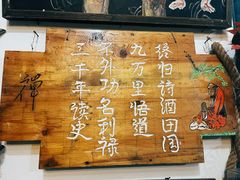 禪
三千年读史
不外功名利禄
九万里悟道
终归诗酒田园